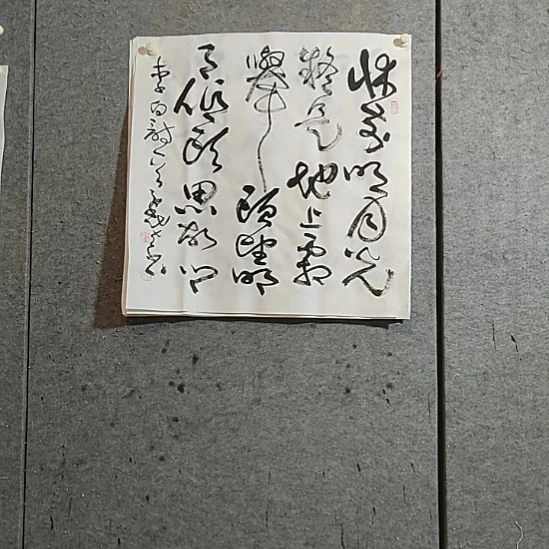 床前明月光
疑是地上霜
舉頭望明
月低頭思故鄉
李白詩